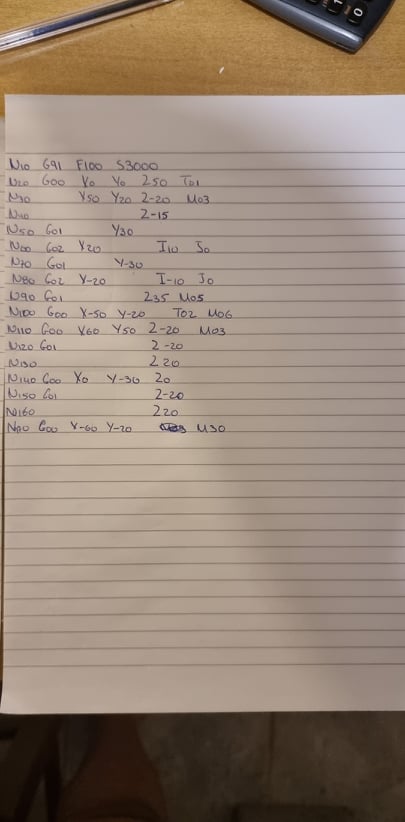 N10 G91 F100 S3000
N20 G00 X0 Y0 Z50 T01
N30 X50 Y20 Z-20 M03
N40 Z-15
N50 G01 Y30
N60 G02 X20 I10 J0
N70 G01 Y-30
N80 G02 X-20 I-10 J0
N90 G01 Z35 M05
N100 G00 X-50 Y-20 T02 M06
N110 G00 X60 Y50 Z-20 M03
N120 G01 Z-20
N130 Z20
N140 G00 X0 Y-30 Z0
N150 G01 Z-20
N160 Z20
G00 X-60 Y-20 M30